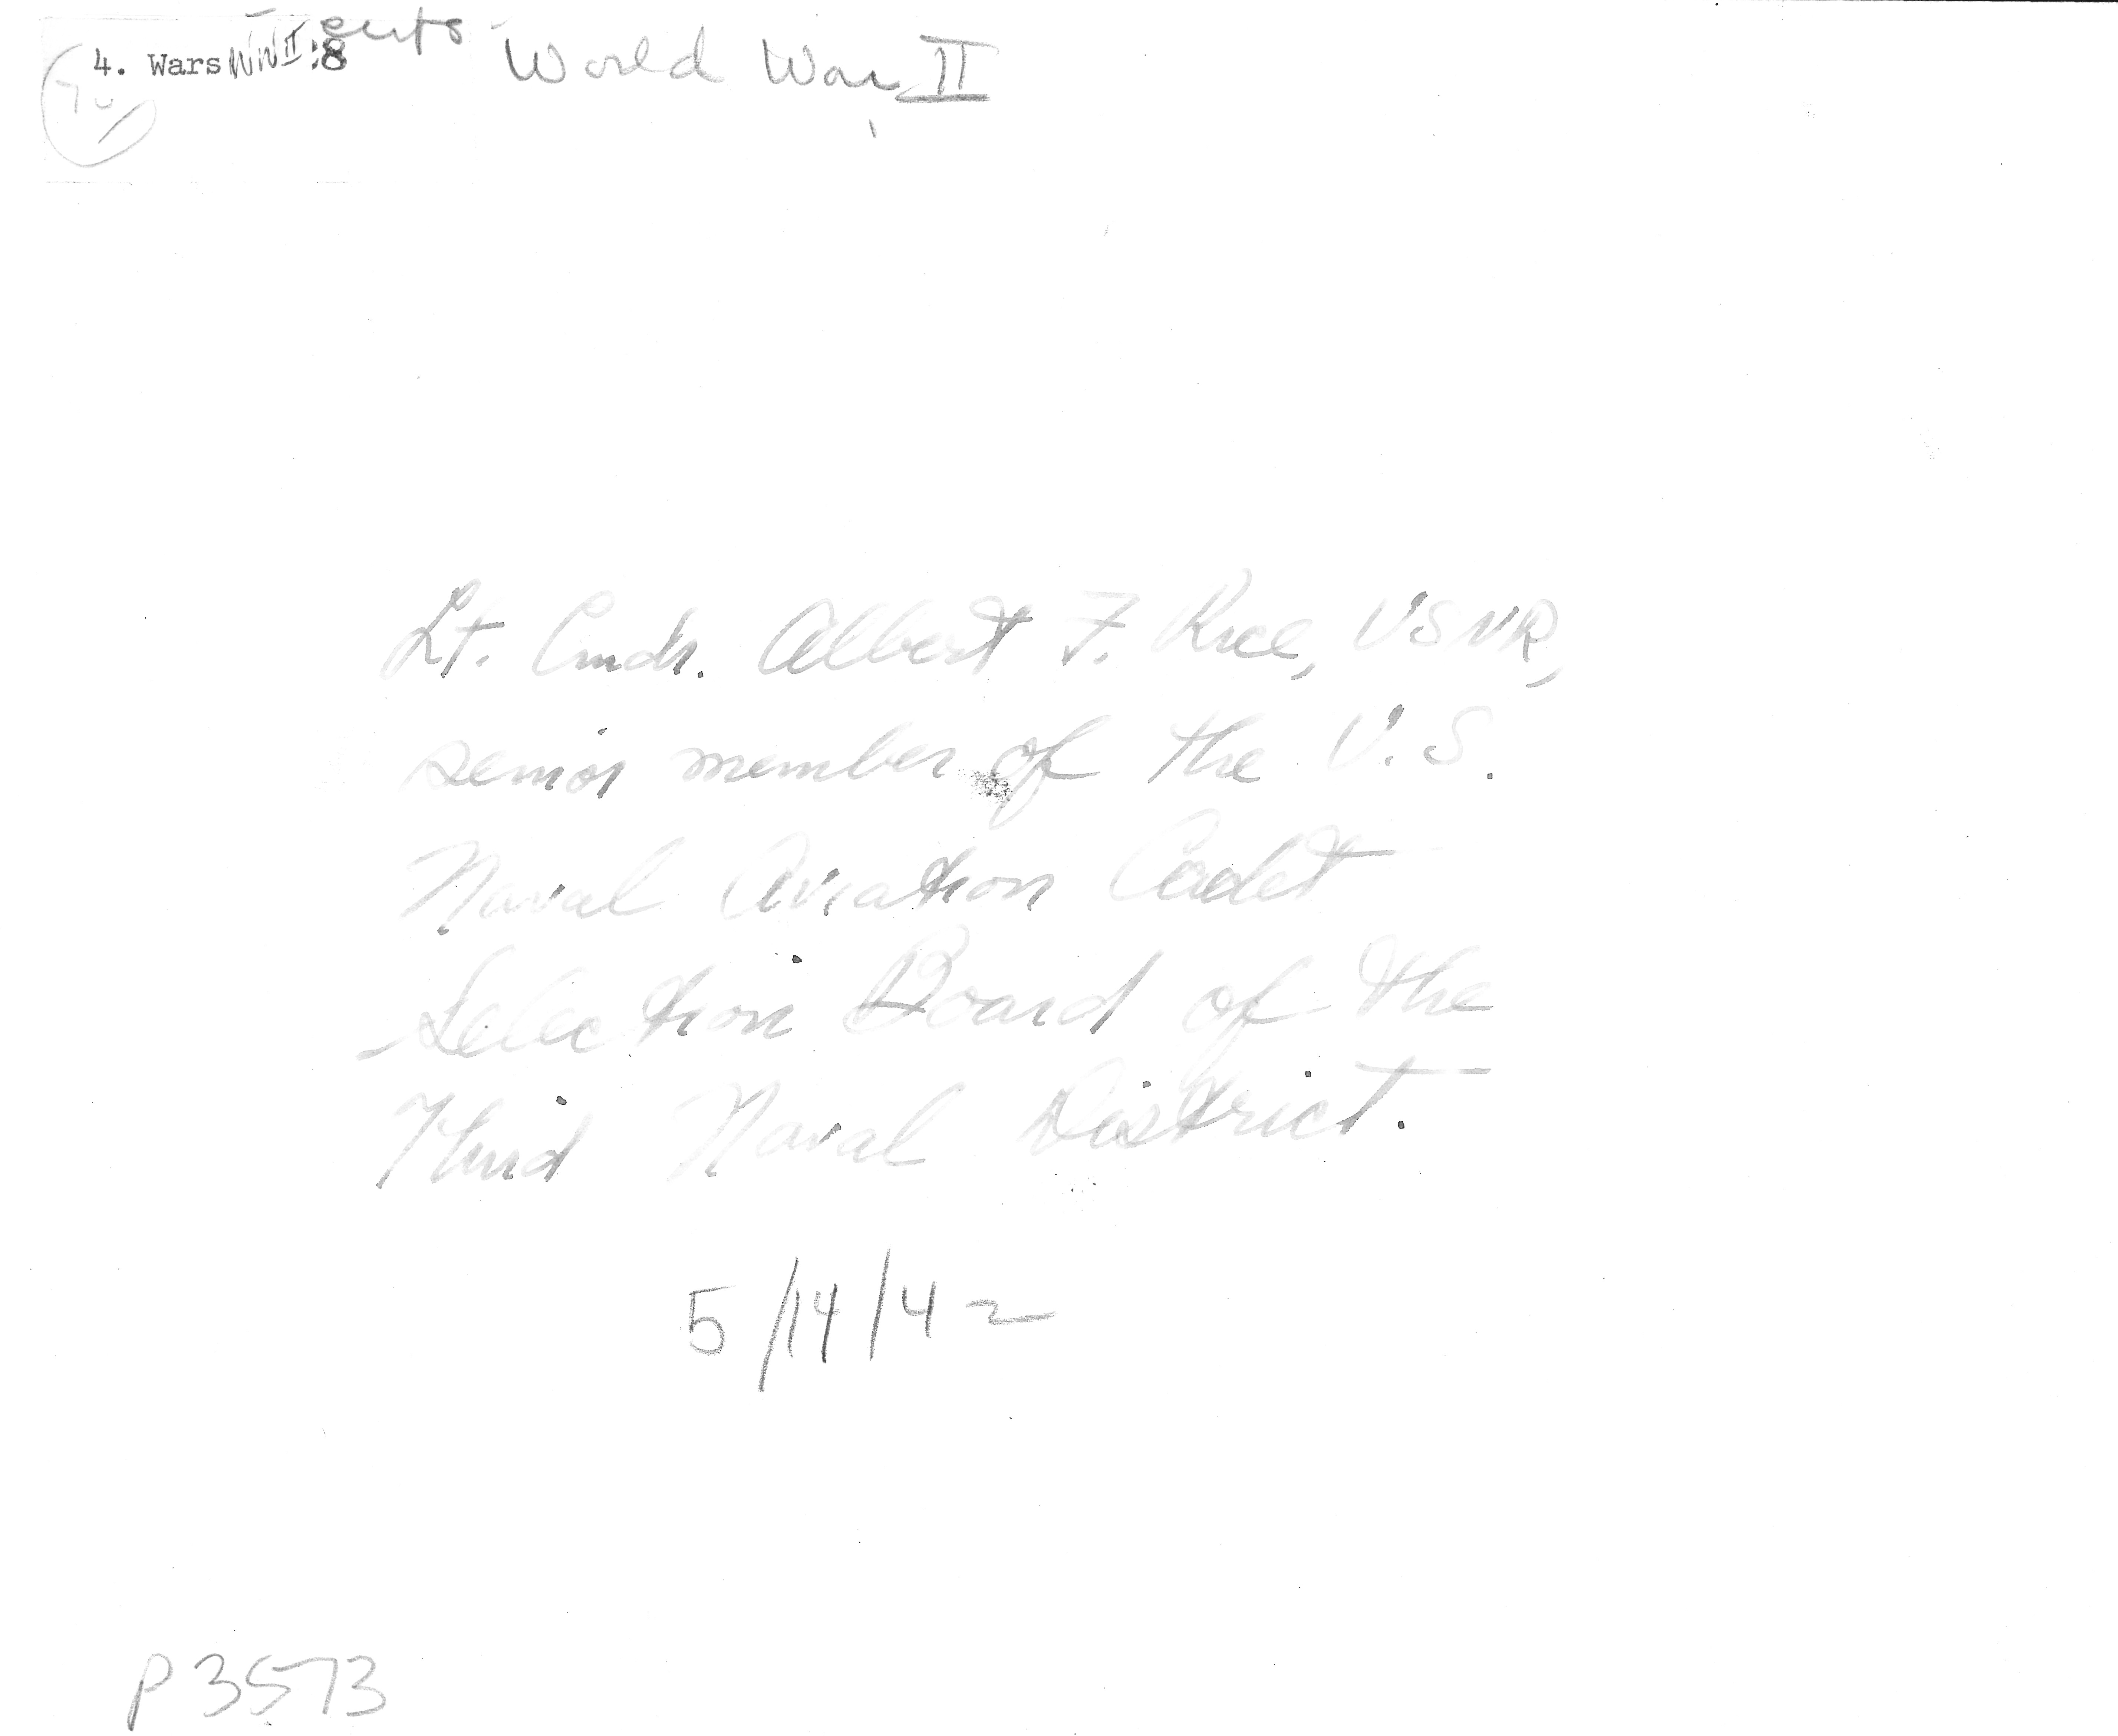 4. Wars WWII:8
World War II
Lt. Cmdr. Albert F. Rice, USNR,
senior member of the U.S.
Naval Aviation Cadet
Selection Board of the
Third Naval District.
5/14/42
P3573